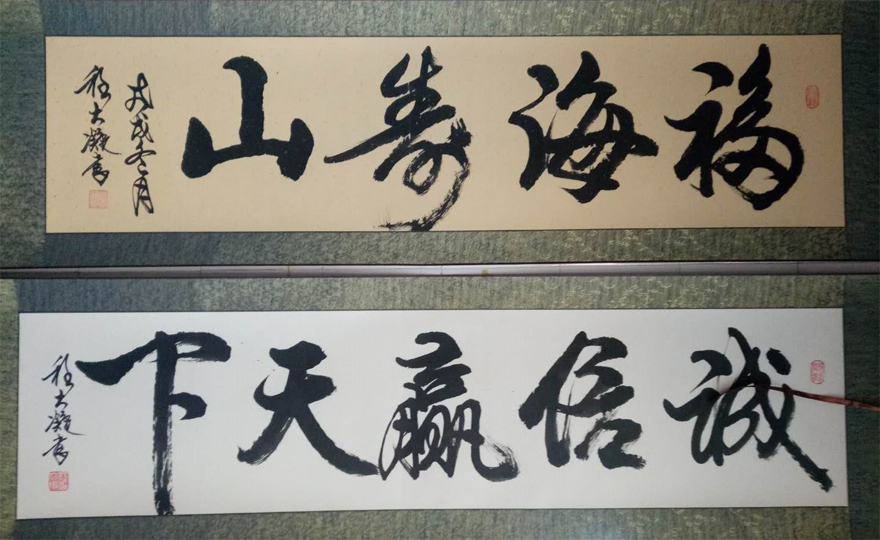 福海寿山
戊戌冬月
程大凝书
诚信赢天下
程大凝书